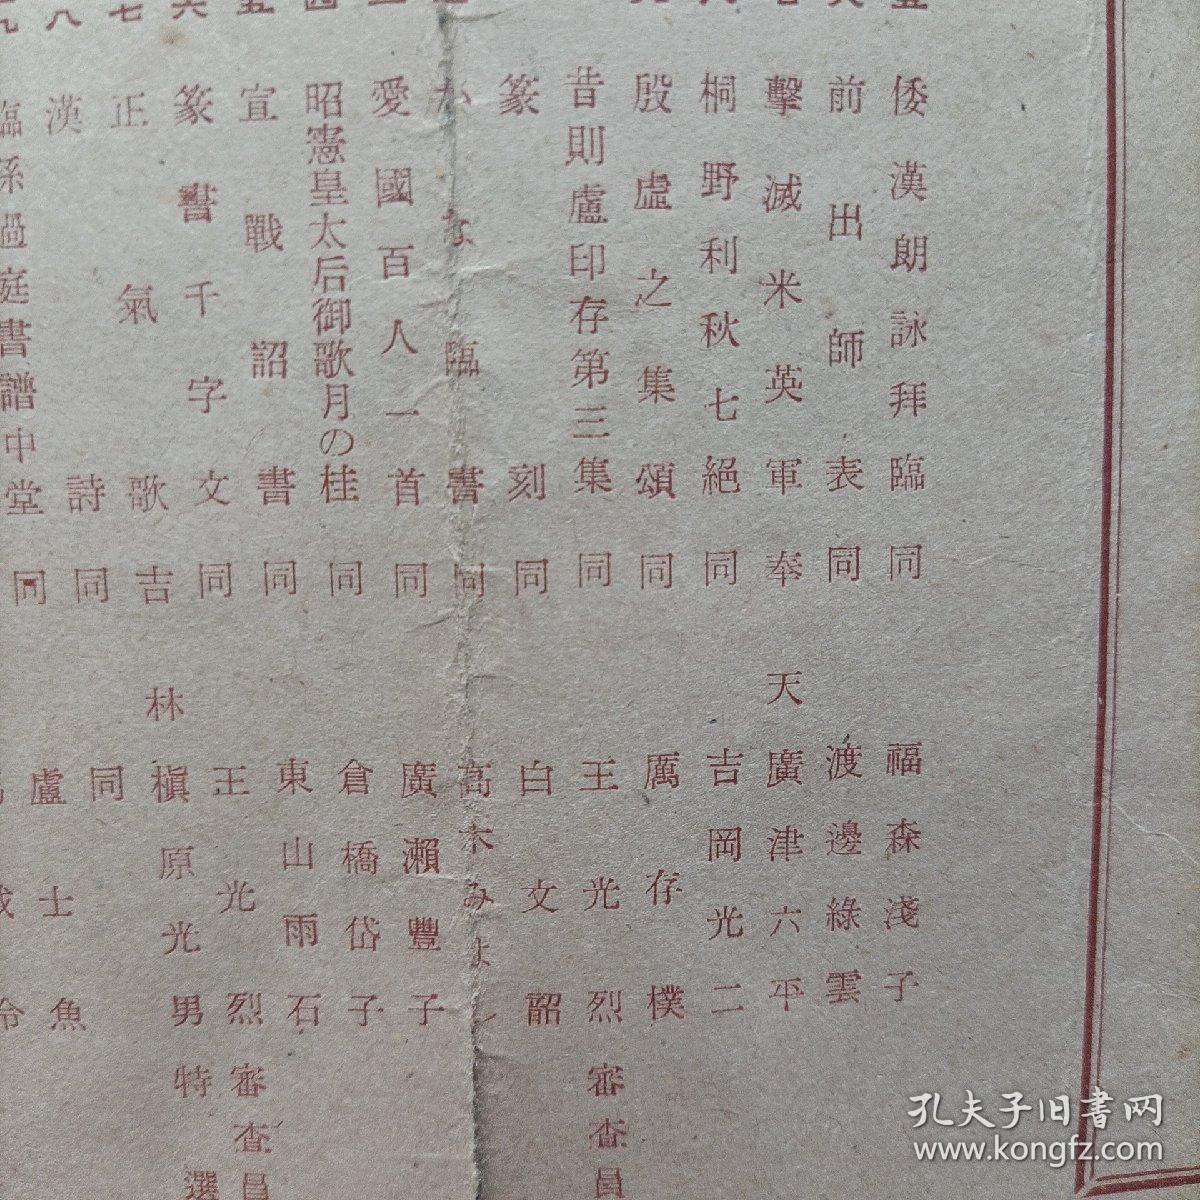 倭漢朗詠拜臨 同 福森淺子
前出師表 同 渡邊綠雲
擊滅米英軍 奉天 廣津六平
桐野利秋七絕 同 吉岡光二
殷虛之集頌 同 厲存樸
昔則廬印存第三集 同 王光烈 審查員
篆刻 同 白文韶
かな臨書 同 高木みよし
愛國百人一首 同 廣瀨豐子
昭憲皇太后御歌月の桂 同 倉橋岱子
宣戰詔書 同 東山雨石
六 篆書千字文 同 王光烈 審查員
七 正氣歌 吉林 槇原光男 特選
八 漢詩 同 同
九 臨孫過庭書譜中堂 同 盧士魚
孔夫子旧书网
www.kongfz.com